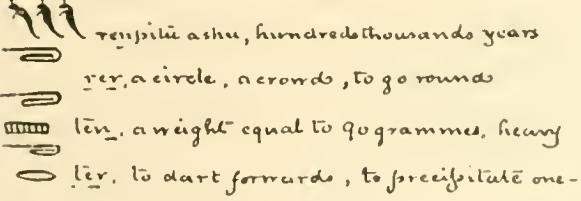 renpitū ashu, hundredsthousands years
rer, a circle, a crowd, to go round
tēn, a weight equal to 90 grammes, heavy
tēr, to dart forwards, to precipitate one-